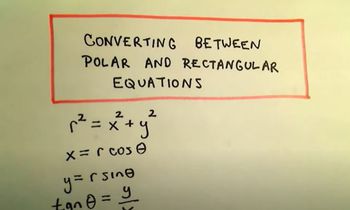 CONVERTING BETWEEN
POLAR AND RECTANGULAR
EQUATIONS
r² = x² + y²
x = r cos θ
y = r sin θ
tan θ = y